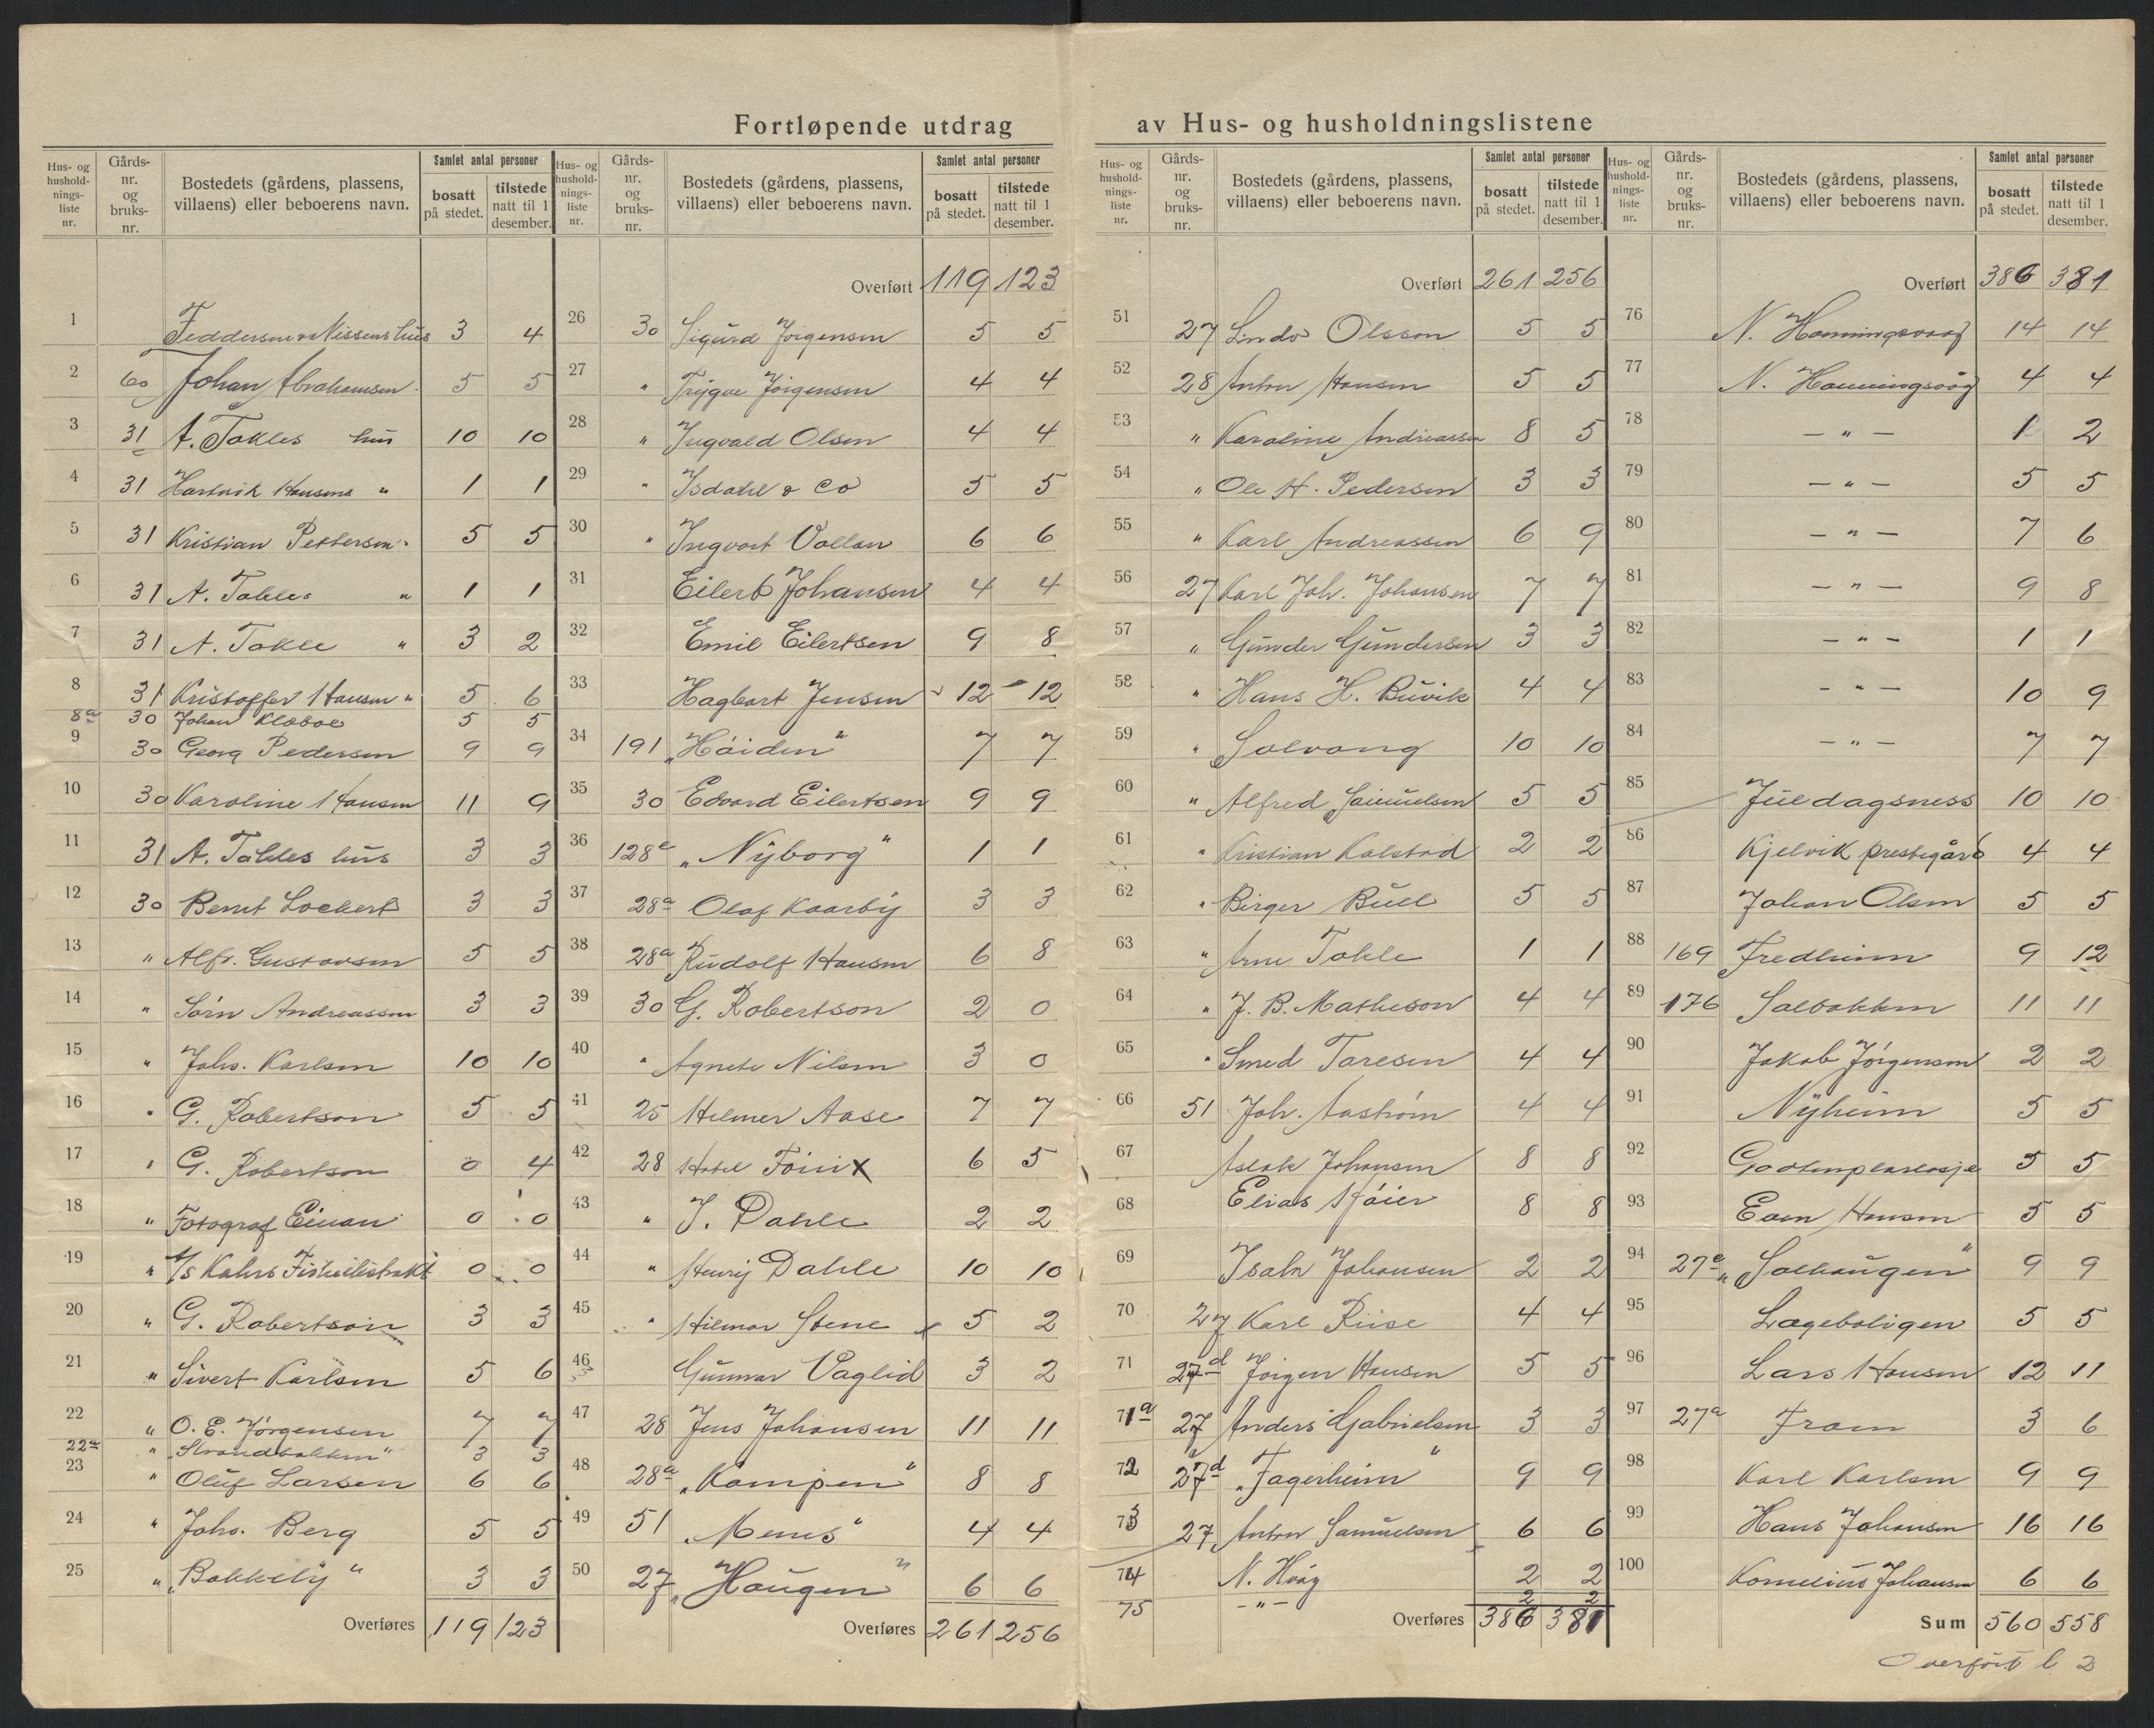 Fortløpende utdrag av Hus- og husholdningslistene
Hus- og husholdningsliste nr. | Gårds- nr. og bruks- nr. | Bostedets (gårdens, plassens, villaens) eller beboerens navn. | Samlet antal personer | bosatt på stedet. | tilstede natt til 1 desember.
1 Feddersen & Nissens hus 3 4
2 60 Johan Abrahamsen 5 5
3 31 A. Takles hus 10 10
4 31 Hartvik Hansens " 1 1
5 31 Kristian Pettersen " 5 5
6 31 A. Takles " 1 1
7 31 A. Takle " 3 2
8 31 Kristoffer Hansen " 5 6
8a 30 Johan Klæboe 5 5
9 30 Georg Pedersen 9 9
10 30 Karoline Hansen 11 9
11 31 A. Takles hus 3 3
12 30 Bernt Lockert 3 3
13 " Alfr. Gustavsen 5 5
14 " Sørn Andreassen 3 3
15 " Johs. Karlsen 10 10
16 " G. Robertson 5 5
17 " G. Robertson 0 4
18 " Fotograf 0 0
19 " A/S Kahrs 0 0
20 " G. Robertson 3 3
21 " Sivert Karlsen 5 6
22 " O. E. Jørgensen 7 7
22a " "Strandbakken" 3 3
23 " Oluf Larsen 6 6
24 " Johs. Berg 5 5
25 " "Bakkely" 3 3
Overføres 119 123
Hus- og husholdningsliste nr. | Gårds- nr. og bruks- nr. | Bostedets (gårdens, plassens, villaens) eller beboerens navn. | Samlet antal personer | bosatt på stedet. | tilstede natt til 1 desember.
Overført 119 123
26 30 Sigurd Jørgensen 5 5
27 " Trygve Jørgensen 4 4
28 " Ingvald Olsen 4 4
29 " Isdahl & Co 5 5
30 " Ingvart Vollan 6 6
31 Eilert Johansen 4 4
32 Emil Eilertsen 9 8
33 Hagbart Jensen 12 12
34 191 "Høiden" 7 7
35 30 Edvard Eilertsen 9 9
36 128a "Nyborg" 1 1
37 28a Olaf Kaarby 3 3
38 28a Rudolf Hansen 6 8
39 30 G. Robertson 2 0
40 " Agnete Nilsen 3 0
41 25 Hilmer Aase 7 7
42 28 Hotel Fønix 6 5
43 " J. Dahle 2 2
44 " Henry Dahle 10 10
45 " Hilmar Stene 5 2
46 Gunnar Vaglid 3 2
47 28 Jens Johansen 11 11
48 28a "Kampen" 8 8
49 51 "Menes" 4 4
50 27 "Haugen" 6 6
Overføres 261 256
Hus- og husholdnings- liste nr. | Gårds- nr. og bruks- nr. | Bostedets (gårdens, plassens, villaens) eller beboerens navn. | Samlet antal personer | bosatt på stedet. | tilstede natt til 1 desember.
Overført 261 256
51 27 Lindv Olsson 5 5
52 28 Anton Hansen 5 5
53 " Karoline Andreassen 8 5
54 " Ole H. Pedersen 3 3
55 " Karl Andreassen 6 9
56 27 Karl Joh. Johansen 7 7
57 " Gunder Gundersen 3 3
58 " Hans H. Buvik 4 4
59 " Solvang 10 10
60 " Alfred Samuelsen 5 5
61 " Kristian Kolstad 2 2
62 " Birger Buel 5 5
63 " Arne Takle 1 1
64 " J. B. Matheson 4 4
65 " Smed Taresen 4 4
66 51 Joh. Aastrøm 4 4
67 Aslak Johansen 8 8
68 Elias Høier 8 8
69 Isak Johansen 2 2
70 27 Karl Riise 4 4
71 27d Jørgen Hansen 5 5
71a 27 Anders Gabrielsen 3 3
72 27d "Fagerheim" 9 9
73 27 Anton Samuelsen 6 6
74 N. Hvåg 2 2
75 - " - 2 2
Overføres 386 381
Hus- og husholdnings- liste nr. | Gårds- nr. og bruks- nr. | Bostedets (gårdens, plassens, villaens) eller beboerens navn. | Samlet antal personer | bosatt på stedet. | tilstede natt til 1 desember.
Overført 386 381
76 N. Honningsvaag 14 14
77 N. Honningsvåg 4 4
78 - " - 1 2
79 - " - 5 5
80 - " - 7 6
81 - " - 9 8
82 - " - 1 1
83 - " - 10 9
84 - " - 7 7
85 Juldagsness 10 10
86 Kjelvik prestegård 4 4
87 Johan Olsen 5 5
88 169 Fredheim 9 12
89 176 Solbakken 11 11
90 Jakob Jørgensen 2 2
91 Nyheim 5 5
92 Godtemplarlosje 5 5
93 Even Hansen 5 5
94 27e "Solhaugen" 9 9
95 Lægeboligen 5 5
96 Lars Hansen 12 11
97 27a Fram 3 6
98 Karl Karlsen 9 9
99 Hans Johansen 16 16
100 Kornelius Johansen 6 6
Sum 560 558
Overført l. 2